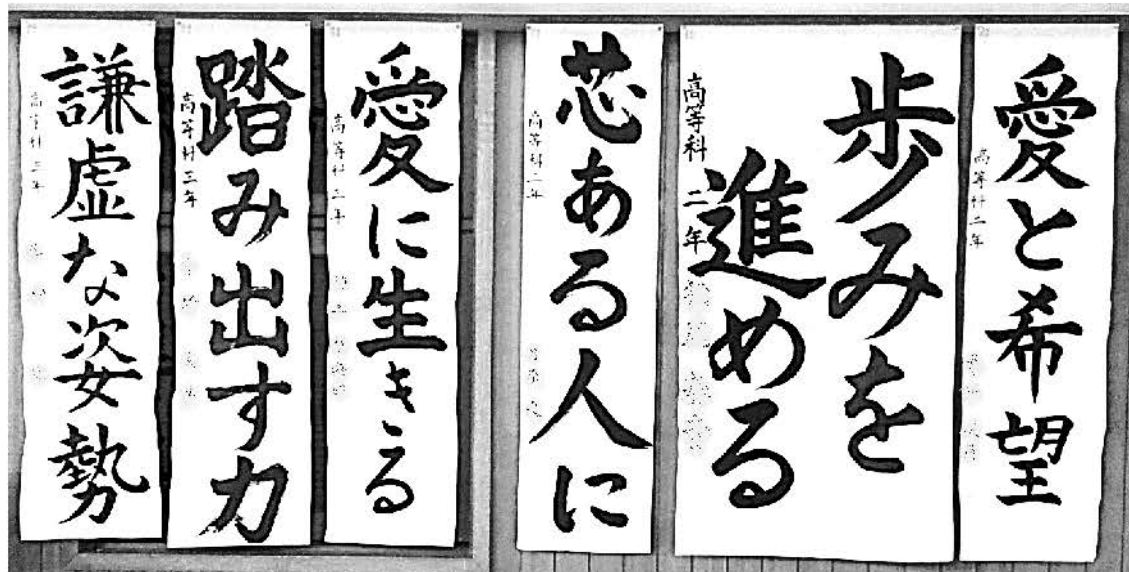 愛と希望
高等科二年
歩みを
進める
高等科 二年
芯ある人に
高等科二年
愛に生きる
高等科二年
踏み出す力
高等科三年
謙虚な姿勢
高等科三年